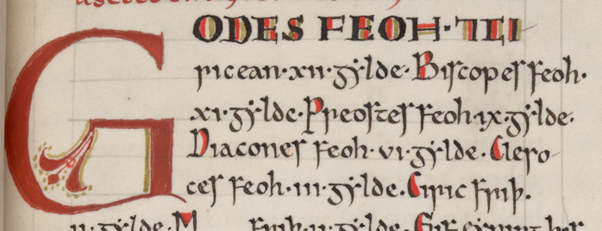 GODES FEOH·⁊CI
ricean·xii·gẏlde·Biscopes feoh·
xi·gẏlde·Preostes feoh ix·gẏlde·
Diacones feoh·vi·gẏlde·Clero
ces feoh·iii·gẏlde·Ciric friþ.
ii·gẏlde·M friþ·ii·gẏlde·Gif cẏning his